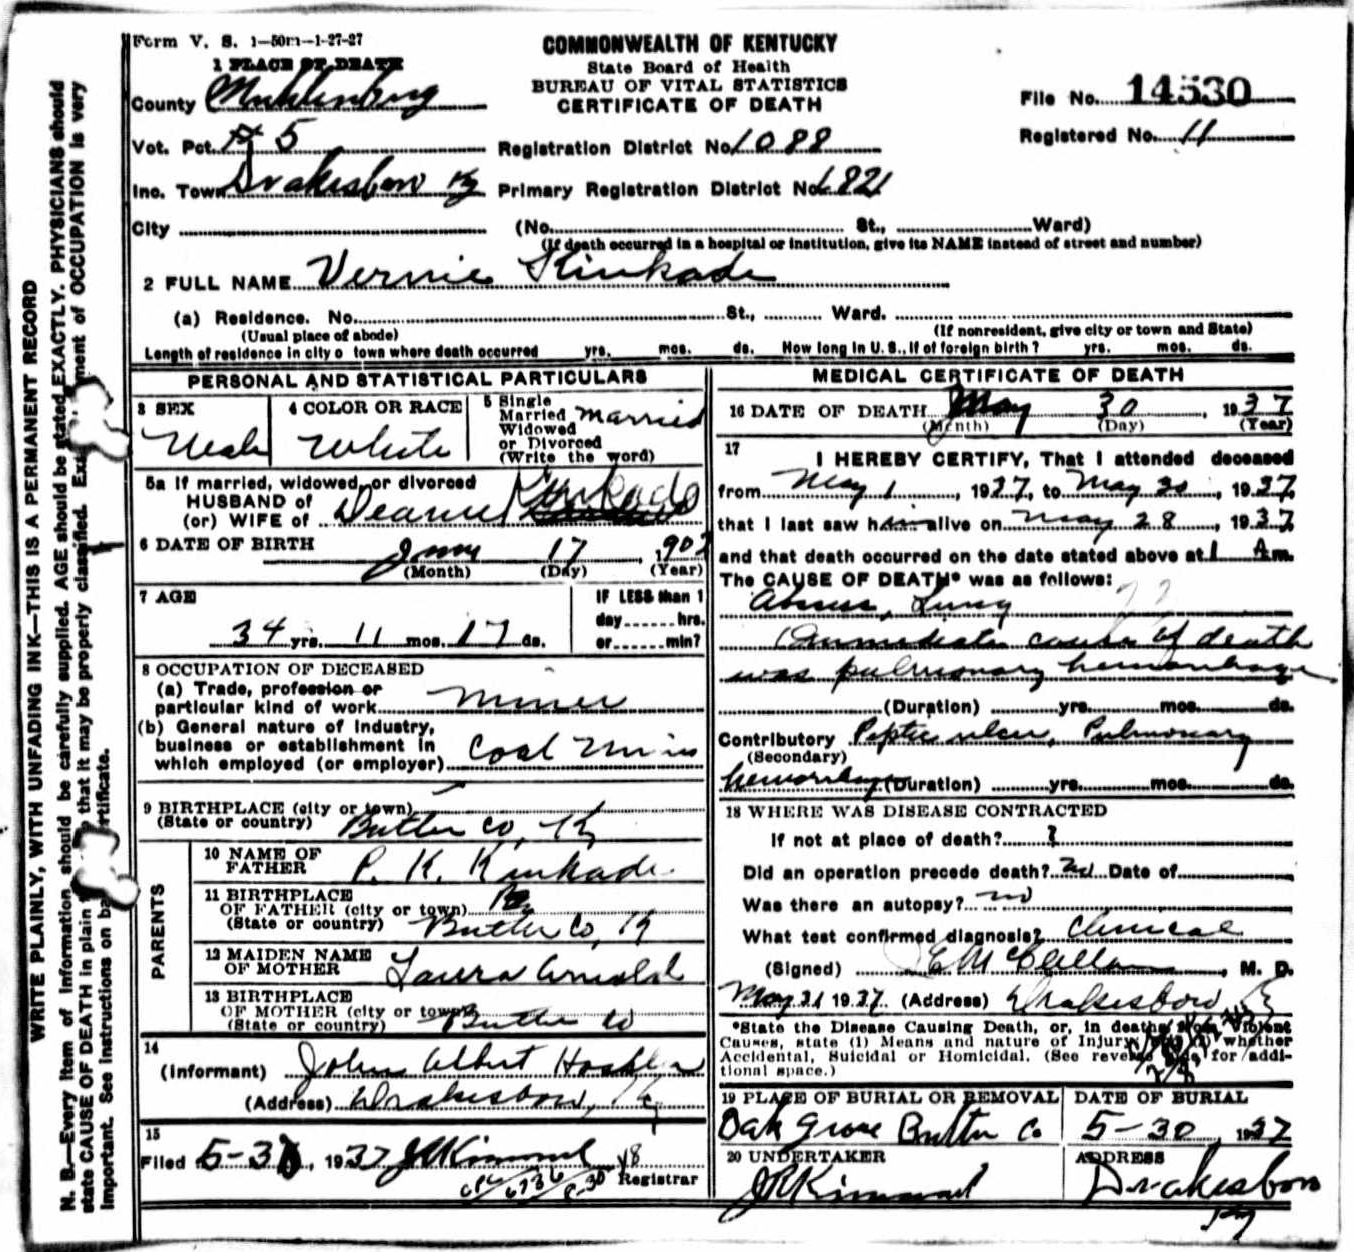 Form V. S. 1—50m—1-27-27
COMMONWEALTH OF KENTUCKY
State Board of Health
BUREAU OF VITAL STATISTICS
CERTIFICATE OF DEATH
File No. 14530
Registered No. 11
1 PLACE OF DEATH
County Muhlenburg
Vot. Pct. # 5
Registration District No. 1088
Inc. Town Drakesboro Ky
Primary Registration District No. 1821
City
(No. St., Ward)
(If death occurred in a hospital or institution, give its NAME instead of street and number)
2 FULL NAME Vernie Kinkade
(a) Residence. No. St., Ward.
(Usual place of abode)
(If nonresident, give city or town and State)
Length of residence in city o town where death occurred yrs. mos. ds. How long in U. S., if of foreign birth? yrs. mos. ds.
PERSONAL AND STATISTICAL PARTICULARS
3 SEX
Male
4 COLOR OR RACE
White
5 Single
Married
Widowed
or Divorced
(Write the word)
Married
5a If married, widowed, or divorced
HUSBAND of
(or) WIFE of Kinkade
6 DATE OF BIRTH 17, 190
(Month) (Day) (Year)
7 AGE
34 yrs. 11 mos. 17 ds.
IF LESS than 1
day hrs.
or min?
8 OCCUPATION OF DECEASED
(a) Trade, profession or
particular kind of work Miner
(b) General nature of Industry,
business or establishment in
which employed (or employer) Coal Mines
9 BIRTHPLACE (city or town)
(State or country) Butler Co, Ky
PARENTS
10 NAME OF
FATHER P. K. Kinkade
11 BIRTHPLACE
OF FATHER (city or town)
(State or country) Butler Co, Ky
12 MAIDEN NAME
OF MOTHER Laura Arnold
13 BIRTHPLACE
OF MOTHER (city or town)
(State or country) Butler Co
14
(Informant) John Albert
(Address) Drakesboro, Ky
15
Filed 5-3, 1937 J R Kimmel
Registrar
MEDICAL CERTIFICATE OF DEATH
16 DATE OF DEATH May 30, 1937
(Month) (Day) (Year)
17
I HEREBY CERTIFY, That I attended deceased
from May 1, 1937, to May 30, 1937,
that I last saw him alive on May 28, 1937
and that death occurred on the date stated above at 1 A m.
The CAUSE OF DEATH* was as follows:
Abscess, Lung
(Immediate cause of death
was pulmonary hemorrhage
(Duration) yrs. mos. ds.
Contributory Peptic ulcer, Pulmonary
(Secondary)
hemorrhage (Duration) yrs. mos. ds.
18 WHERE WAS DISEASE CONTRACTED
If not at place of death? ?
Did an operation precede death? no Date of
Was there an autopsy? no
What test confirmed diagnosis? Clinical
(Signed) , M. D.
May 31 1937 (Address) Drakesboro, Ky
*State the Disease Causing Death, or, in deaths from Violent
Causes, state (1) Means and nature of Injury, whether
Accidental, Suicidal or Homicidal. (See reverse side for addi-
tional space.)
19 PLACE OF BURIAL OR REMOVAL
Oak Grove Butler Co
DATE OF BURIAL
5-30, 1937
20 UNDERTAKER
J R Kimmel
ADDRESS
Drakesboro
Ky
WRITE PLAINLY, WITH UNFADING INK—THIS IS A PERMANENT RECORD
N. B.—Every item of information should be carefully supplied. AGE should be stated EXACTLY. PHYSICIANS should
state CAUSE OF DEATH in plain that it may be properly classified. ment of OCCUPATION is very
important. See instructions on